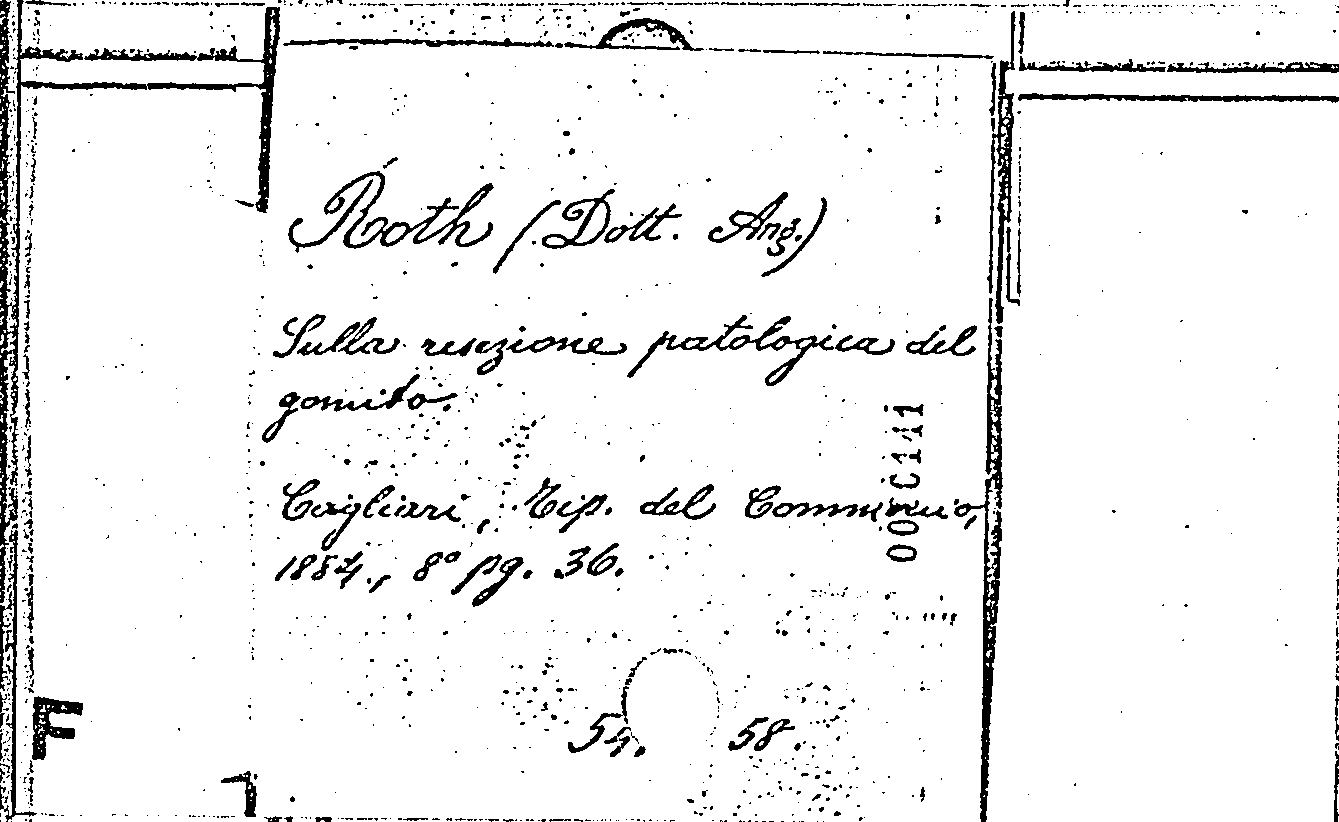 Roth (Dott. Ang.)
Sulla resezione patologica del
gomito.
Cagliari, Tip. del Commercio,
1884., 8° pg. 36.
54. 58.
F